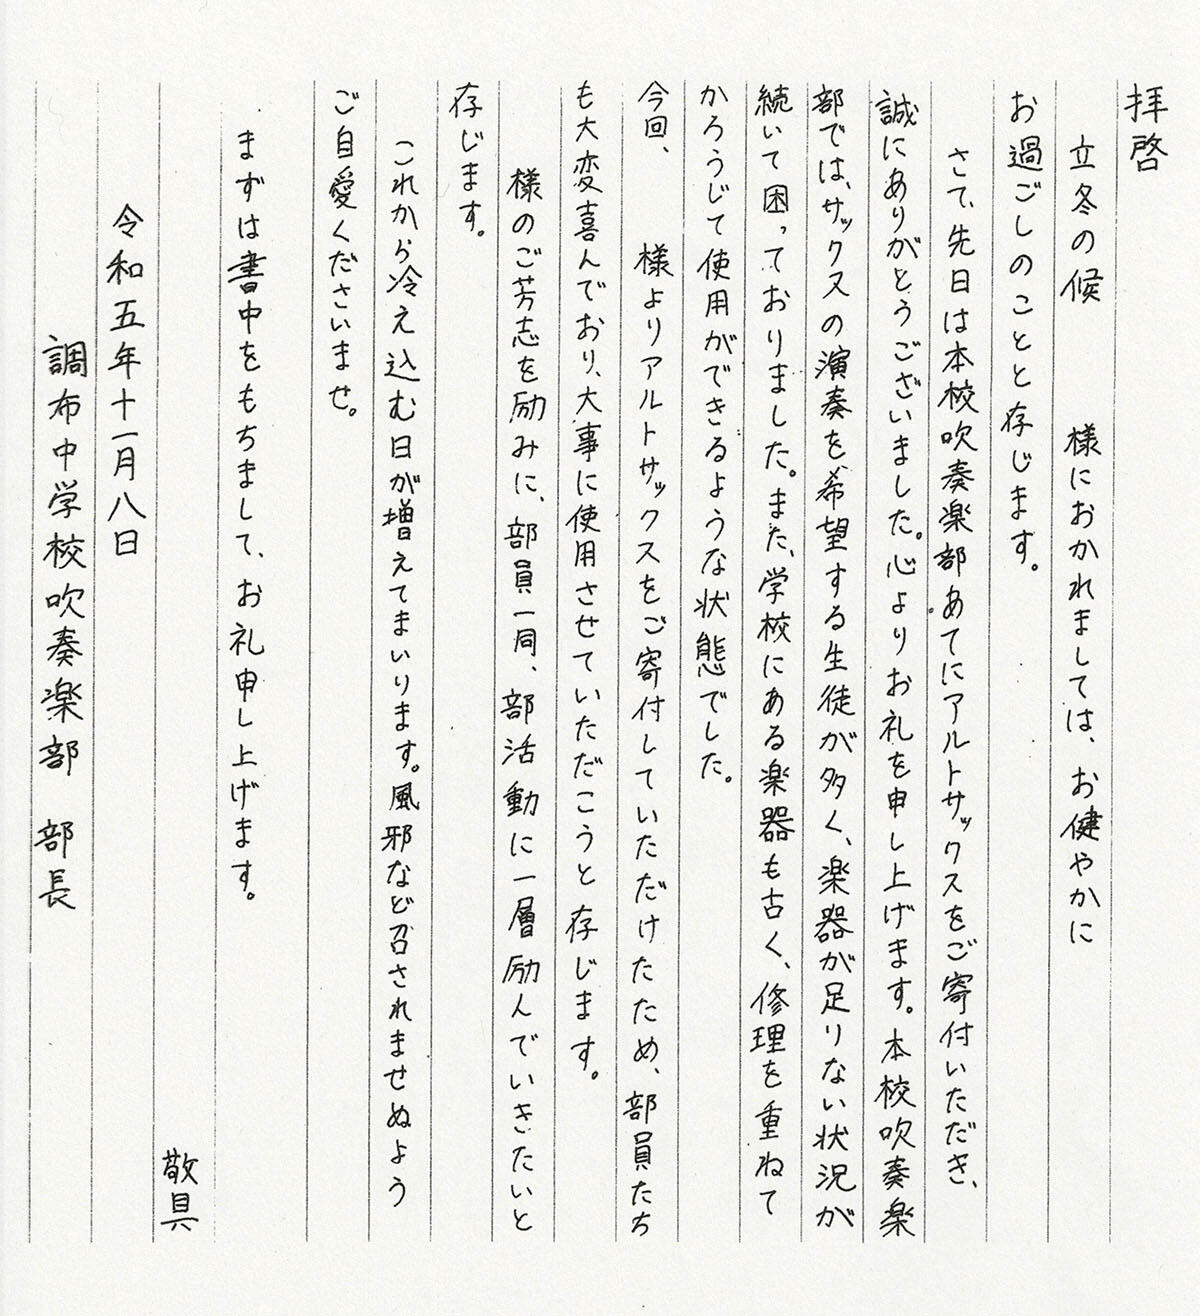 拝啓
立冬の候　　　様におかれましては、お健やかに
お過ごしのことと存じます。
さて、先日は本校吹奏楽部あてにアルトサックスをご寄付いただき、
誠にありがとうございました。心よりお礼を申し上げます。本校吹奏楽
部では、サックスの演奏を希望する生徒が多く、楽器が足りない状況が
続いて困っておりました。また、学校にある楽器も古く、修理を重ねて
かろうじて使用ができるような状態でした。
今回、　　　様よりアルトサックスをご寄付していただけたため、部員たち
も大変喜んでおり、大事に使用させていただこうと存じます。
様のご芳志を励みに、部員一同、部活動に一層励んでいきたいと
存じます。
これから冷え込む日が増えてまいります。風邪など召されませぬよう
ご自愛くださいませ。
まずは書中をもちまして、お礼申し上げます。
敬具
令和五年十一月八日
調布中学校吹奏楽部　部長